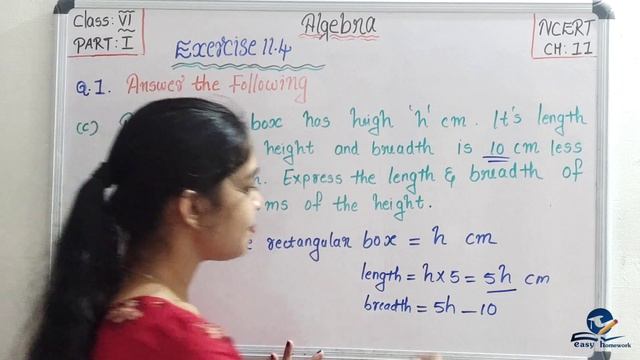 Class: VI
PART: I
Algebra
NCERT
CH: II
Exercise 11.4
Q.1. Answer the Following
(c) box has heigh 'h' cm. It's length
height and breadth is 10 cm less
Express the length & breadth of
of the height.
rectangular box = h cm
length = h x 5 = 5h cm
breadth = 5h - 10
easy homework